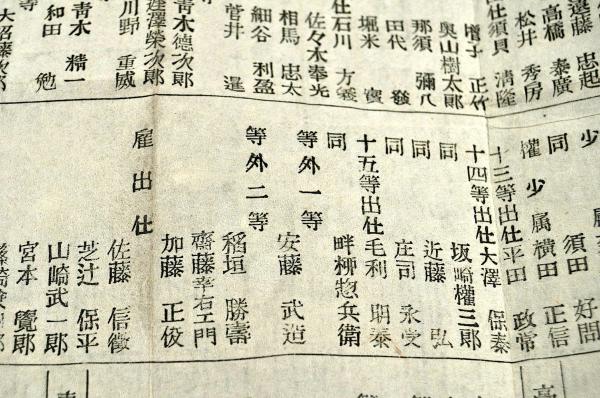 遠藤 忠起
高橋 泰廣
松井 秀房
仕須貝 清隆
増子 正竹
奥山樹太郎
那須 彌八
田代 發
堀米 寛
仕石川 方義
佐々木奉光
相馬 忠太
細谷 利盈
菅井 暹
青木徳次郎
逢澤榮次郎
川野 重威
青木 精一
和田 勉
大沼藤次郎
少
同 須田 好問
權少属横田 正信
十三等出仕平田 政常
十四等出仕大澤 保泰
坂崎權三郎
同 近藤 弘
同 庄司 永受
同
十五等出仕毛利 明泰
同 畔柳惣兵衛
等外一等
安藤 武造
等外二等
稻垣 勝壽
齋藤幸右エ門
加藤 正俊
雇出仕
佐藤 信徵
芝辻 保平
山崎武一郎
宮本 覺郎